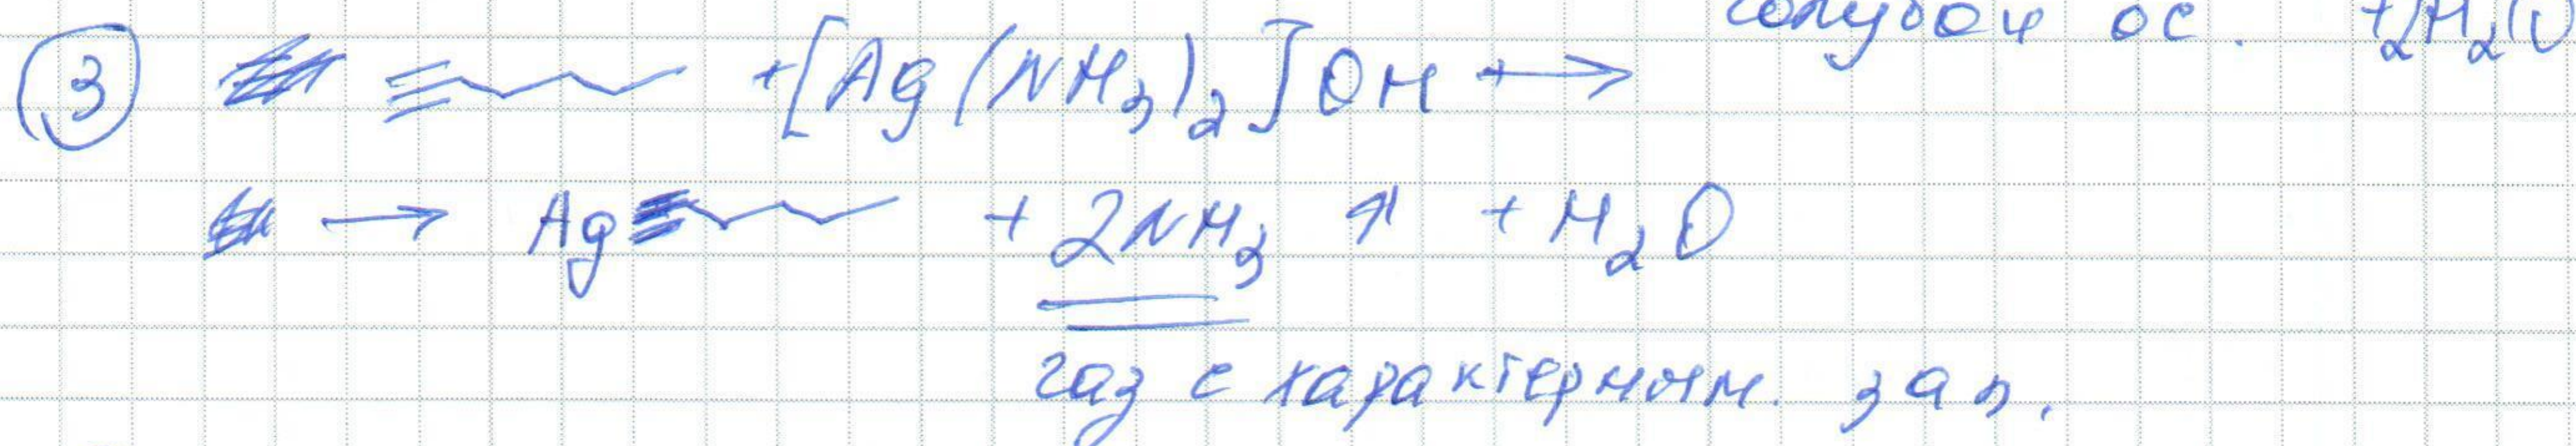 голубой ос. +2H₂O
③ ≡ + [Ag(NH₃)₂]OH →
→ Ag≡ + 2NH₃ ↑ + H₂O
газ с характерным. зап.